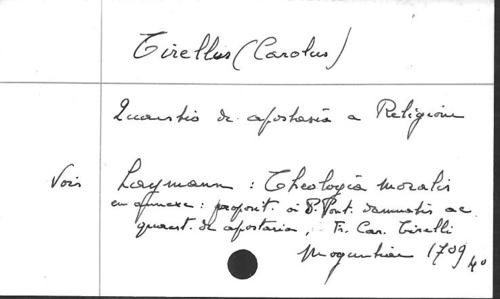 Tirellus (Carolus)
Quaestio de apostasia a Religione
Vois Laymann : Theologia moralis
en annexe : proposit. a S. Pont. damnatis ac
quaest. de apostasia, Fr. Car. Tirelli
Moguntiae 1709 4°